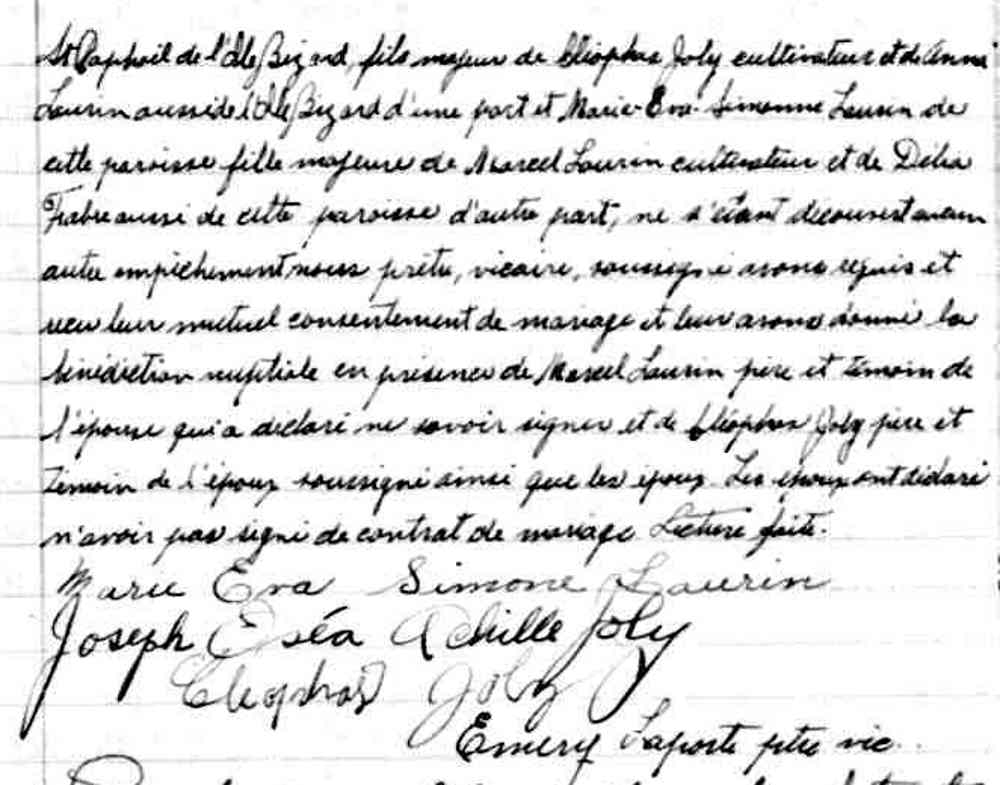 St Raphaël de l'Ile Bizard, fils majeur de Cléophas Joly cultivateur et de Anna
Laurin aussi de l'Ile Bizard d'une part et Marie-Eva-Simonne Laurin de
cette paroisse fille majeure de Marcel Laurin cultivateur et de Délia
aussi de cette paroisse d'autre part, ne s'étant découvert aucun
autre empêchement nous prêtre, vicaire, soussigné avons requis et
reçu leur mutuel consentement de mariage et leur avons donné la
bénédiction nuptiale en présence de Marcel Laurin père et témoin de
l'épouse qui a déclaré ne savoir signer et de Cléophas Joly père et
témoin de l'époux soussigné ainsi que les époux. Les époux ont déclaré
n'avoir pas signé de contrat de mariage Lecture faite.
Marie Eva Simone Laurin
Joseph Achille Joly
Cleophas Joly
Emery Laporte ptre vic.